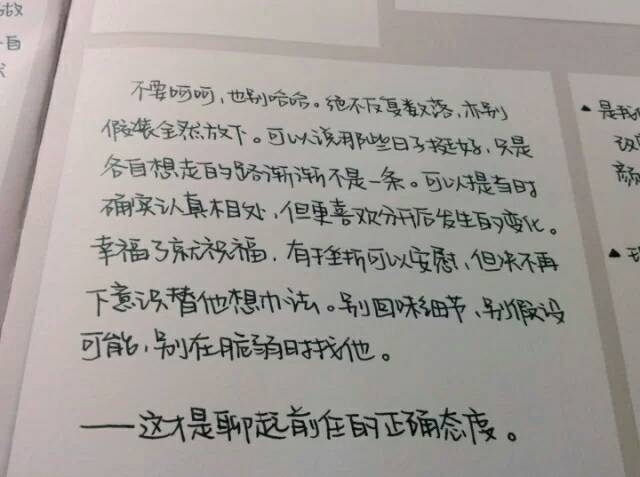 不要呵呵，也别哈哈。绝不反复数落，亦别
假装全然放下。可以说那些日子挺好，只是
各自想走的路渐渐不是一条。可以提当时
确实认真相处，但更喜欢分开后发生的变化。
幸福了就祝福，有挫折可以安慰，但决不再
下意识替他想办法。别回味细节，别假设
可能，别在脆弱时找他。
——这才是聊起前任的正确态度。
▲是我
▲